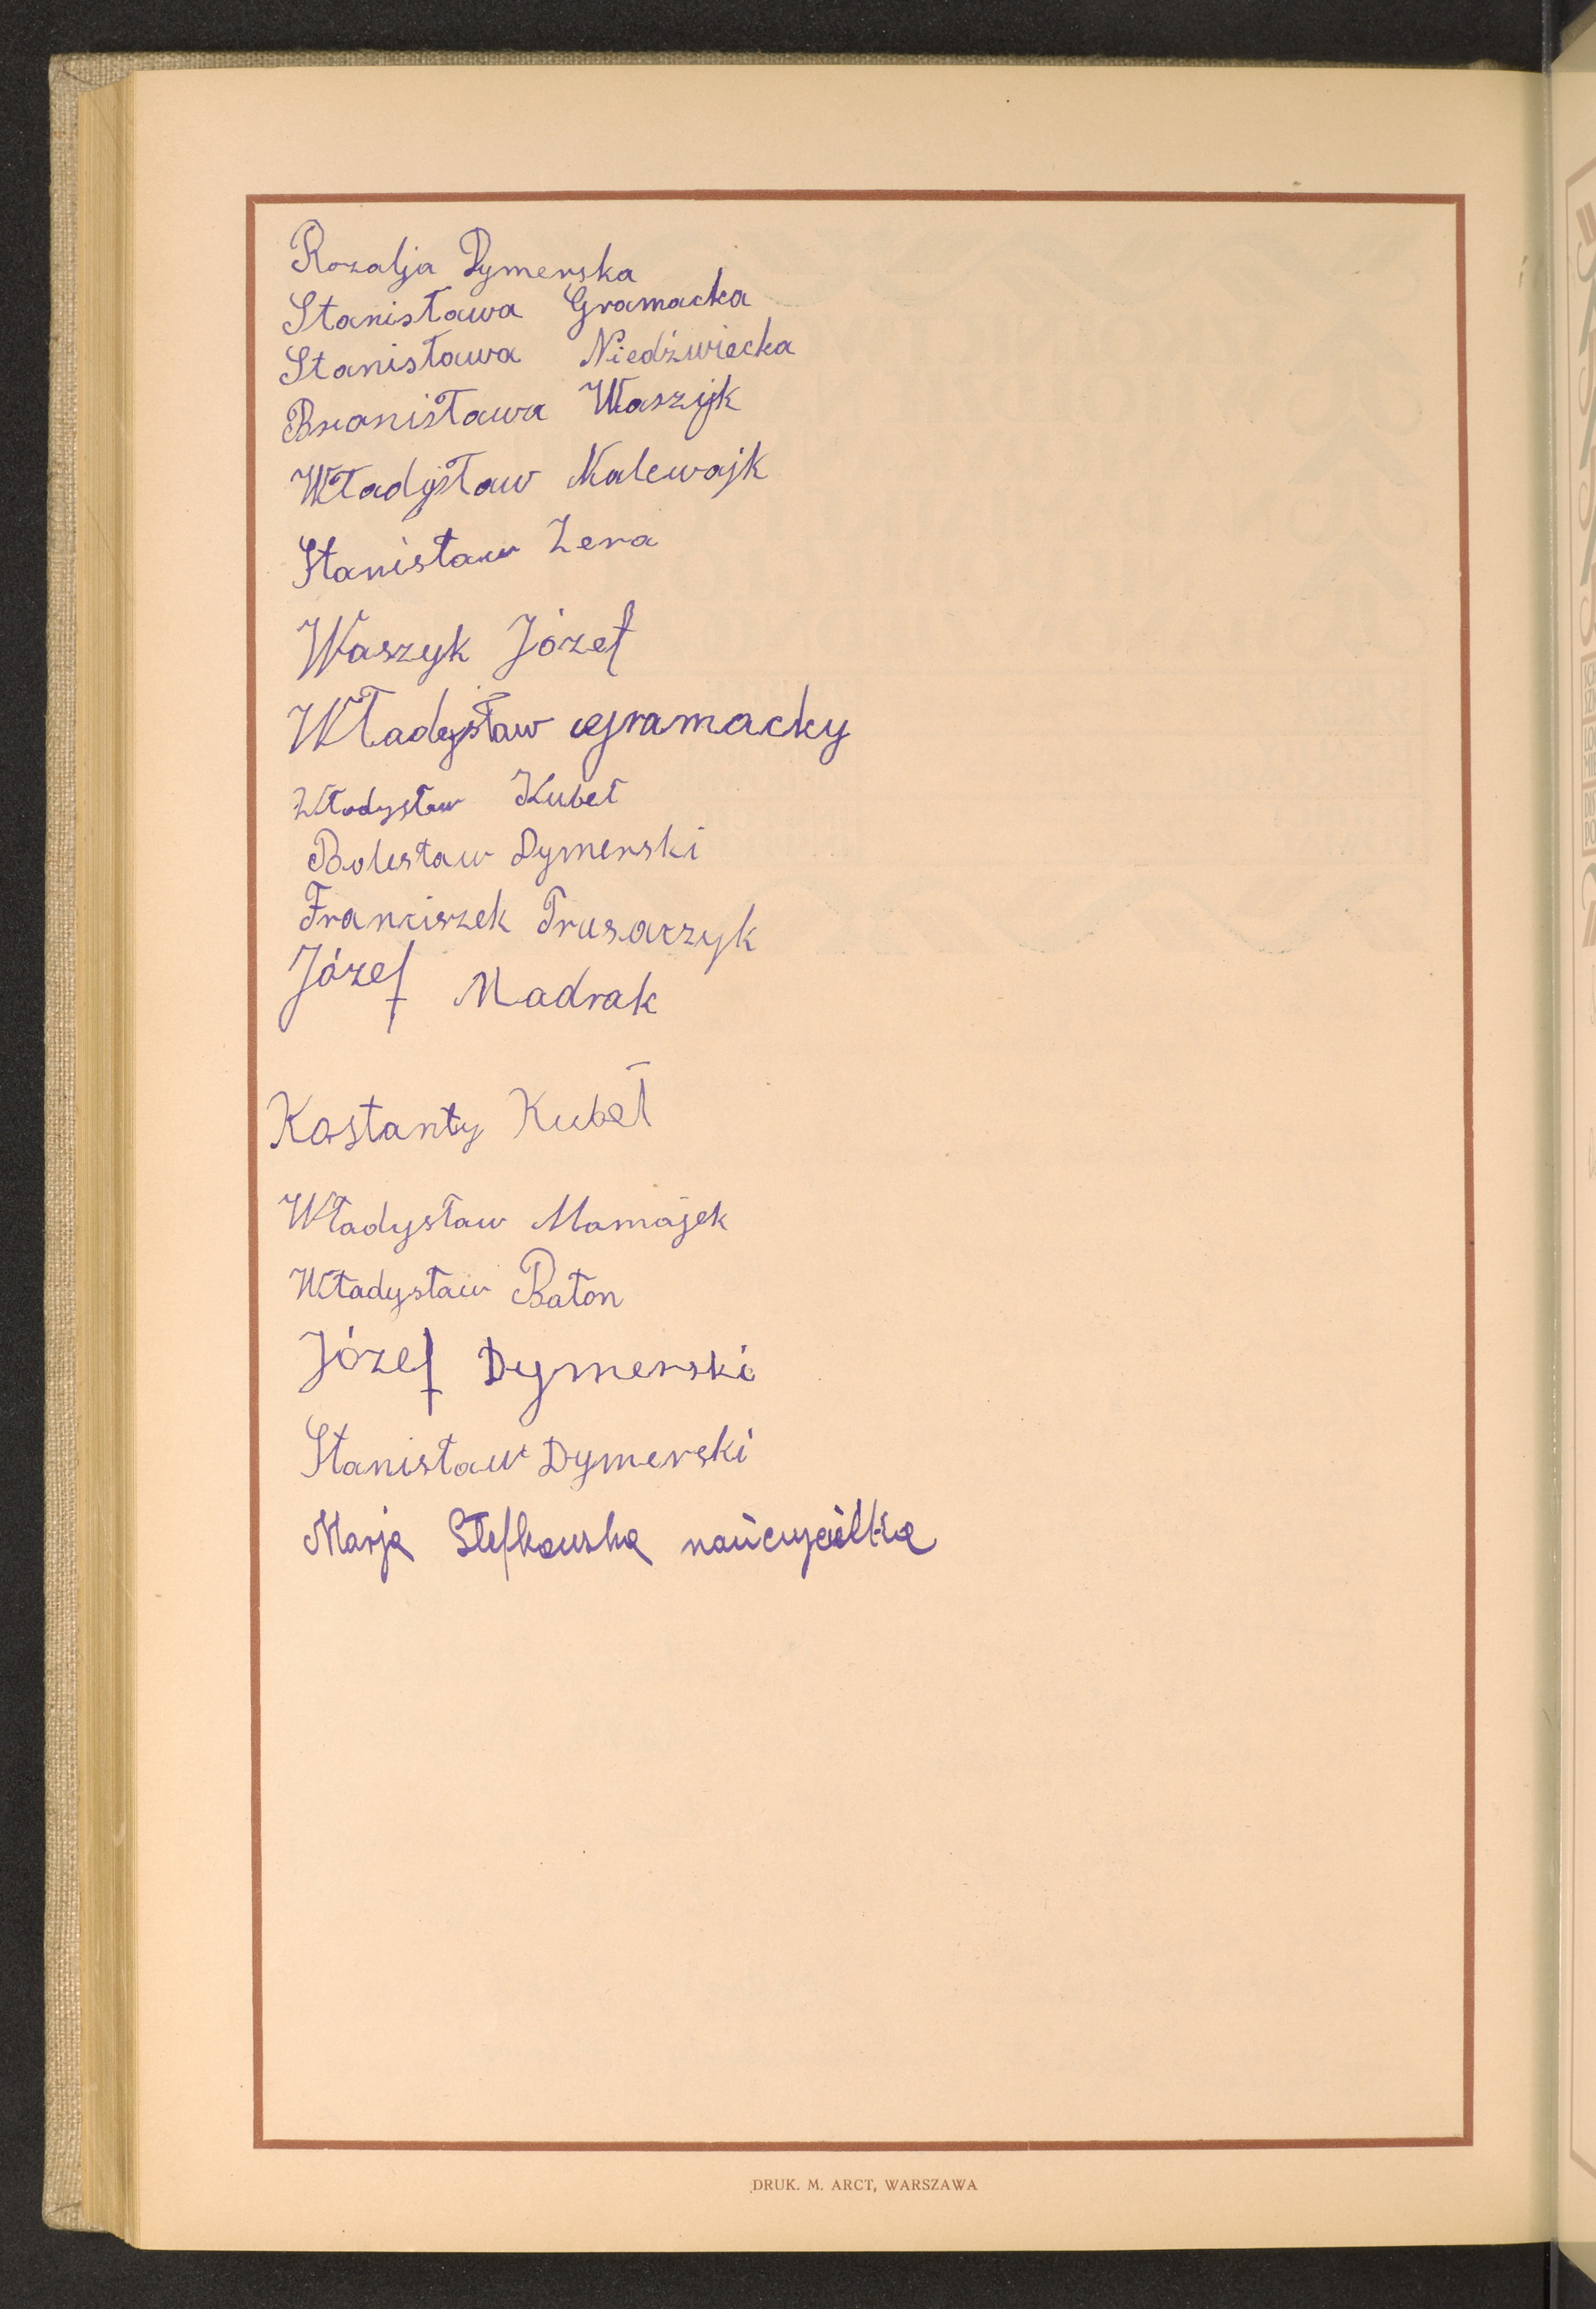 Rozalja Dymerska
Stanisława Gramacka
Stanisława Niedźwiecka
Bronisława Waszyk
Władysław Malewajk
Stanisław Zera
Waszyk Józef
Władysław Gramacky
Władysław Kubeł
Bolesław Dymerski
Franciszek Trusarzyk
Józef Madrak
Kostanty Kubeł
Władysław Mamajek
Władysław Baton
Józef Dymerski
Stanisław Dymerski
Marja Stefkowska nauczycielka
DRUK. M. ARCT, WARSZAWA